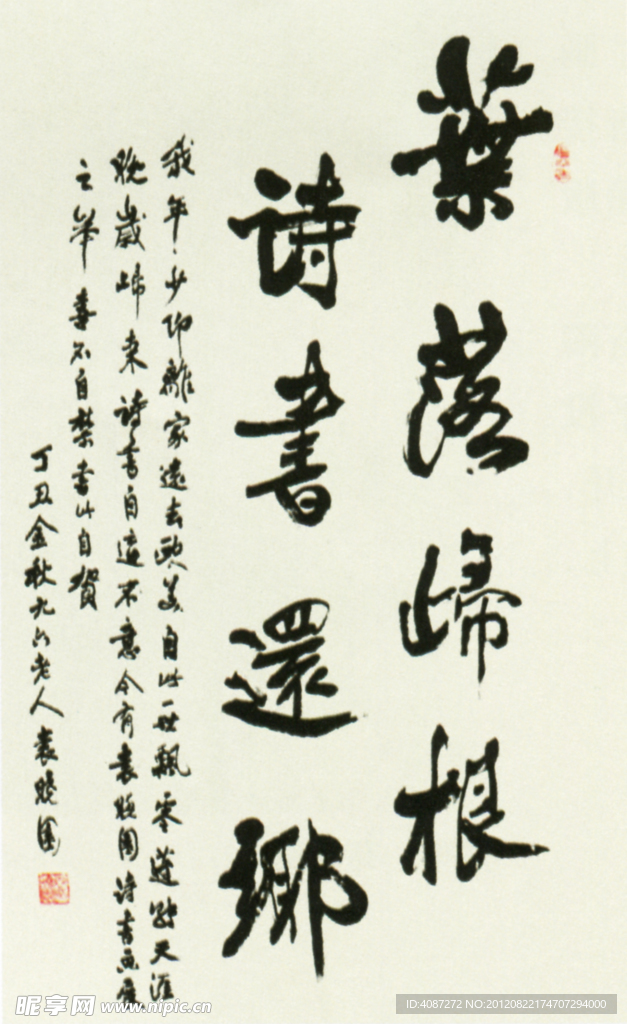 葉落歸根
詩書還鄉
我年少即離家遠去歐美自此一世飄零蓬跡天涯
晚歲歸来詩書自遣不意今有袁曉園詩書画展
之举喜不自禁書此自賀
丁丑金秋九六老人袁曉園
昵享网 www.nipic.cn
ID:4087272 NO:20120822174707294000